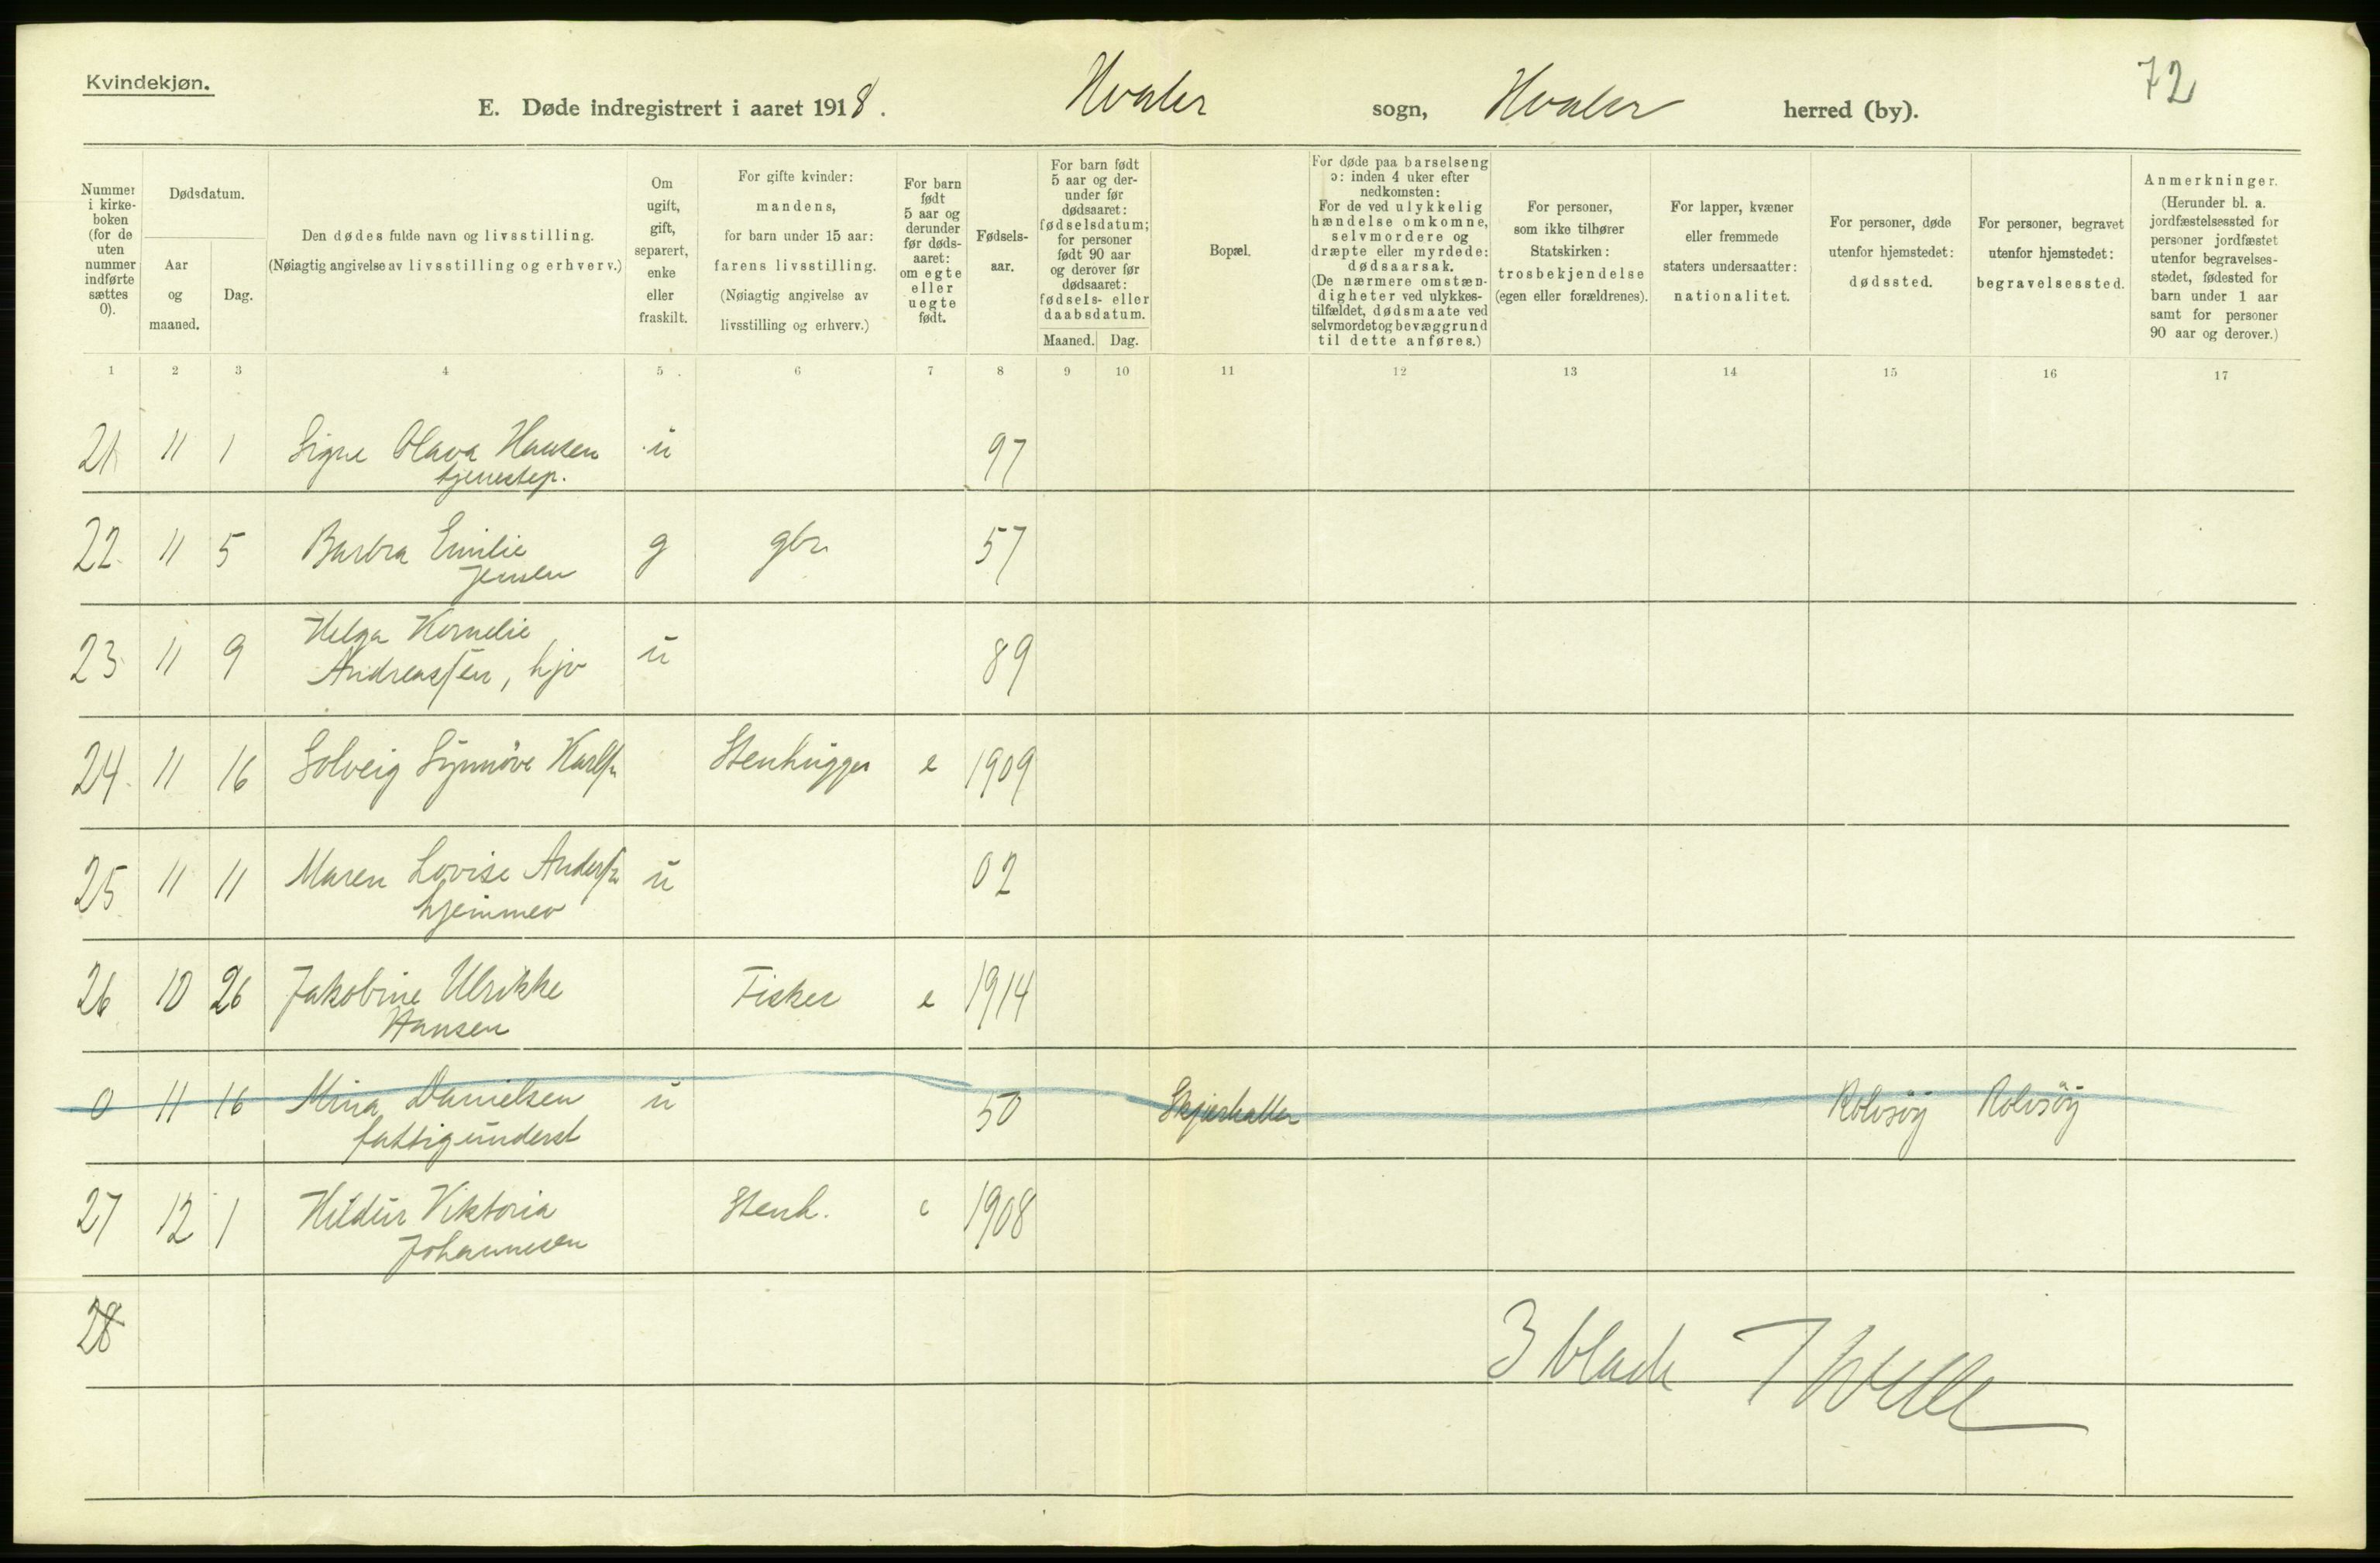 Kvindekjøn.
72
E. Døde indregistrert i aaret 1918. Hvaler sogn, Hvaler herred (by).
Nummer i kirke-boken (for de uten nummer indførte sættes 0).
Dødsdatum.
Aar og maaned.
Dag.
Den dødes fulde navn og livsstilling.
(Nøiagtig angivelse av livsstilling og erhverv.)
Om ugift, gift, separert, enke eller fraskilt.
For gifte kvinder: mandens, for barn under 15 aar: farens livsstilling. (Nøiagtig angivelse av livsstilling og erhverv.)
For barn født 5 aar og derunder før døds-aaret: om egte eller uegte født.
Fødsels-aar.
For barn født 5 aar og der-under før dødsaaret: fødselsdatum; for personer født 90 aar og derover før dødsaaret: fødsels- eller daabsdatum.
Maaned. Dag.
Bopæl.
For døde paa barselseng ɔ: inden 4 uker efter nedkomsten:
For de ved ulykkelig hændelse omkomne, selvmordere og dræpte eller myrdede: dødsaarsak.
(De nærmere omstæn-digheter ved ulykkes-tilfældet, dødsmaate ved selvmordet og bevæggrund til dette anføres.)
For personer, som ikke tilhører Statskirken: trosbekjendelse (egen eller forældrenes).
For lapper, kvæner eller fremmede staters undersaatter: nationalitet.
For personer, døde utenfor hjemstedet: dødssted.
For personer, begravet utenfor hjemstedet: begravelsessted.
Anmerkninger.
(Herunder bl. a. jordfæstelsessted for personer jordfæstet utenfor begravelses-stedet, fødested for barn under 1 aar samt for personer 90 aar og derover.)
1 2 3 4 5 6 7 8 9 10 11 12 13 14 15 16 17
21 11 1 Signe Olava Hansen u 97
tjenestep.
22 11 5 Barbra Emilie g gbr 57
Jensen
23 11 9 Helga Kornelie u 89
Andreassen, hjv
24 11 16 Solveig Synnöve Karls. Stenhugger e 1909
25 11 11 Maren Lovise Anders. u 02
hjemmev
26 10 26 Jakobine Ulrikke Fisker e 1914
Hansen
0 11 16 Mina Danielsen u 50 Rolvsöy Rolvsöy
fattigunderst
27 12 1 Hildur Viktoria Stenh. e 1908
Johannesen
28
3 blade